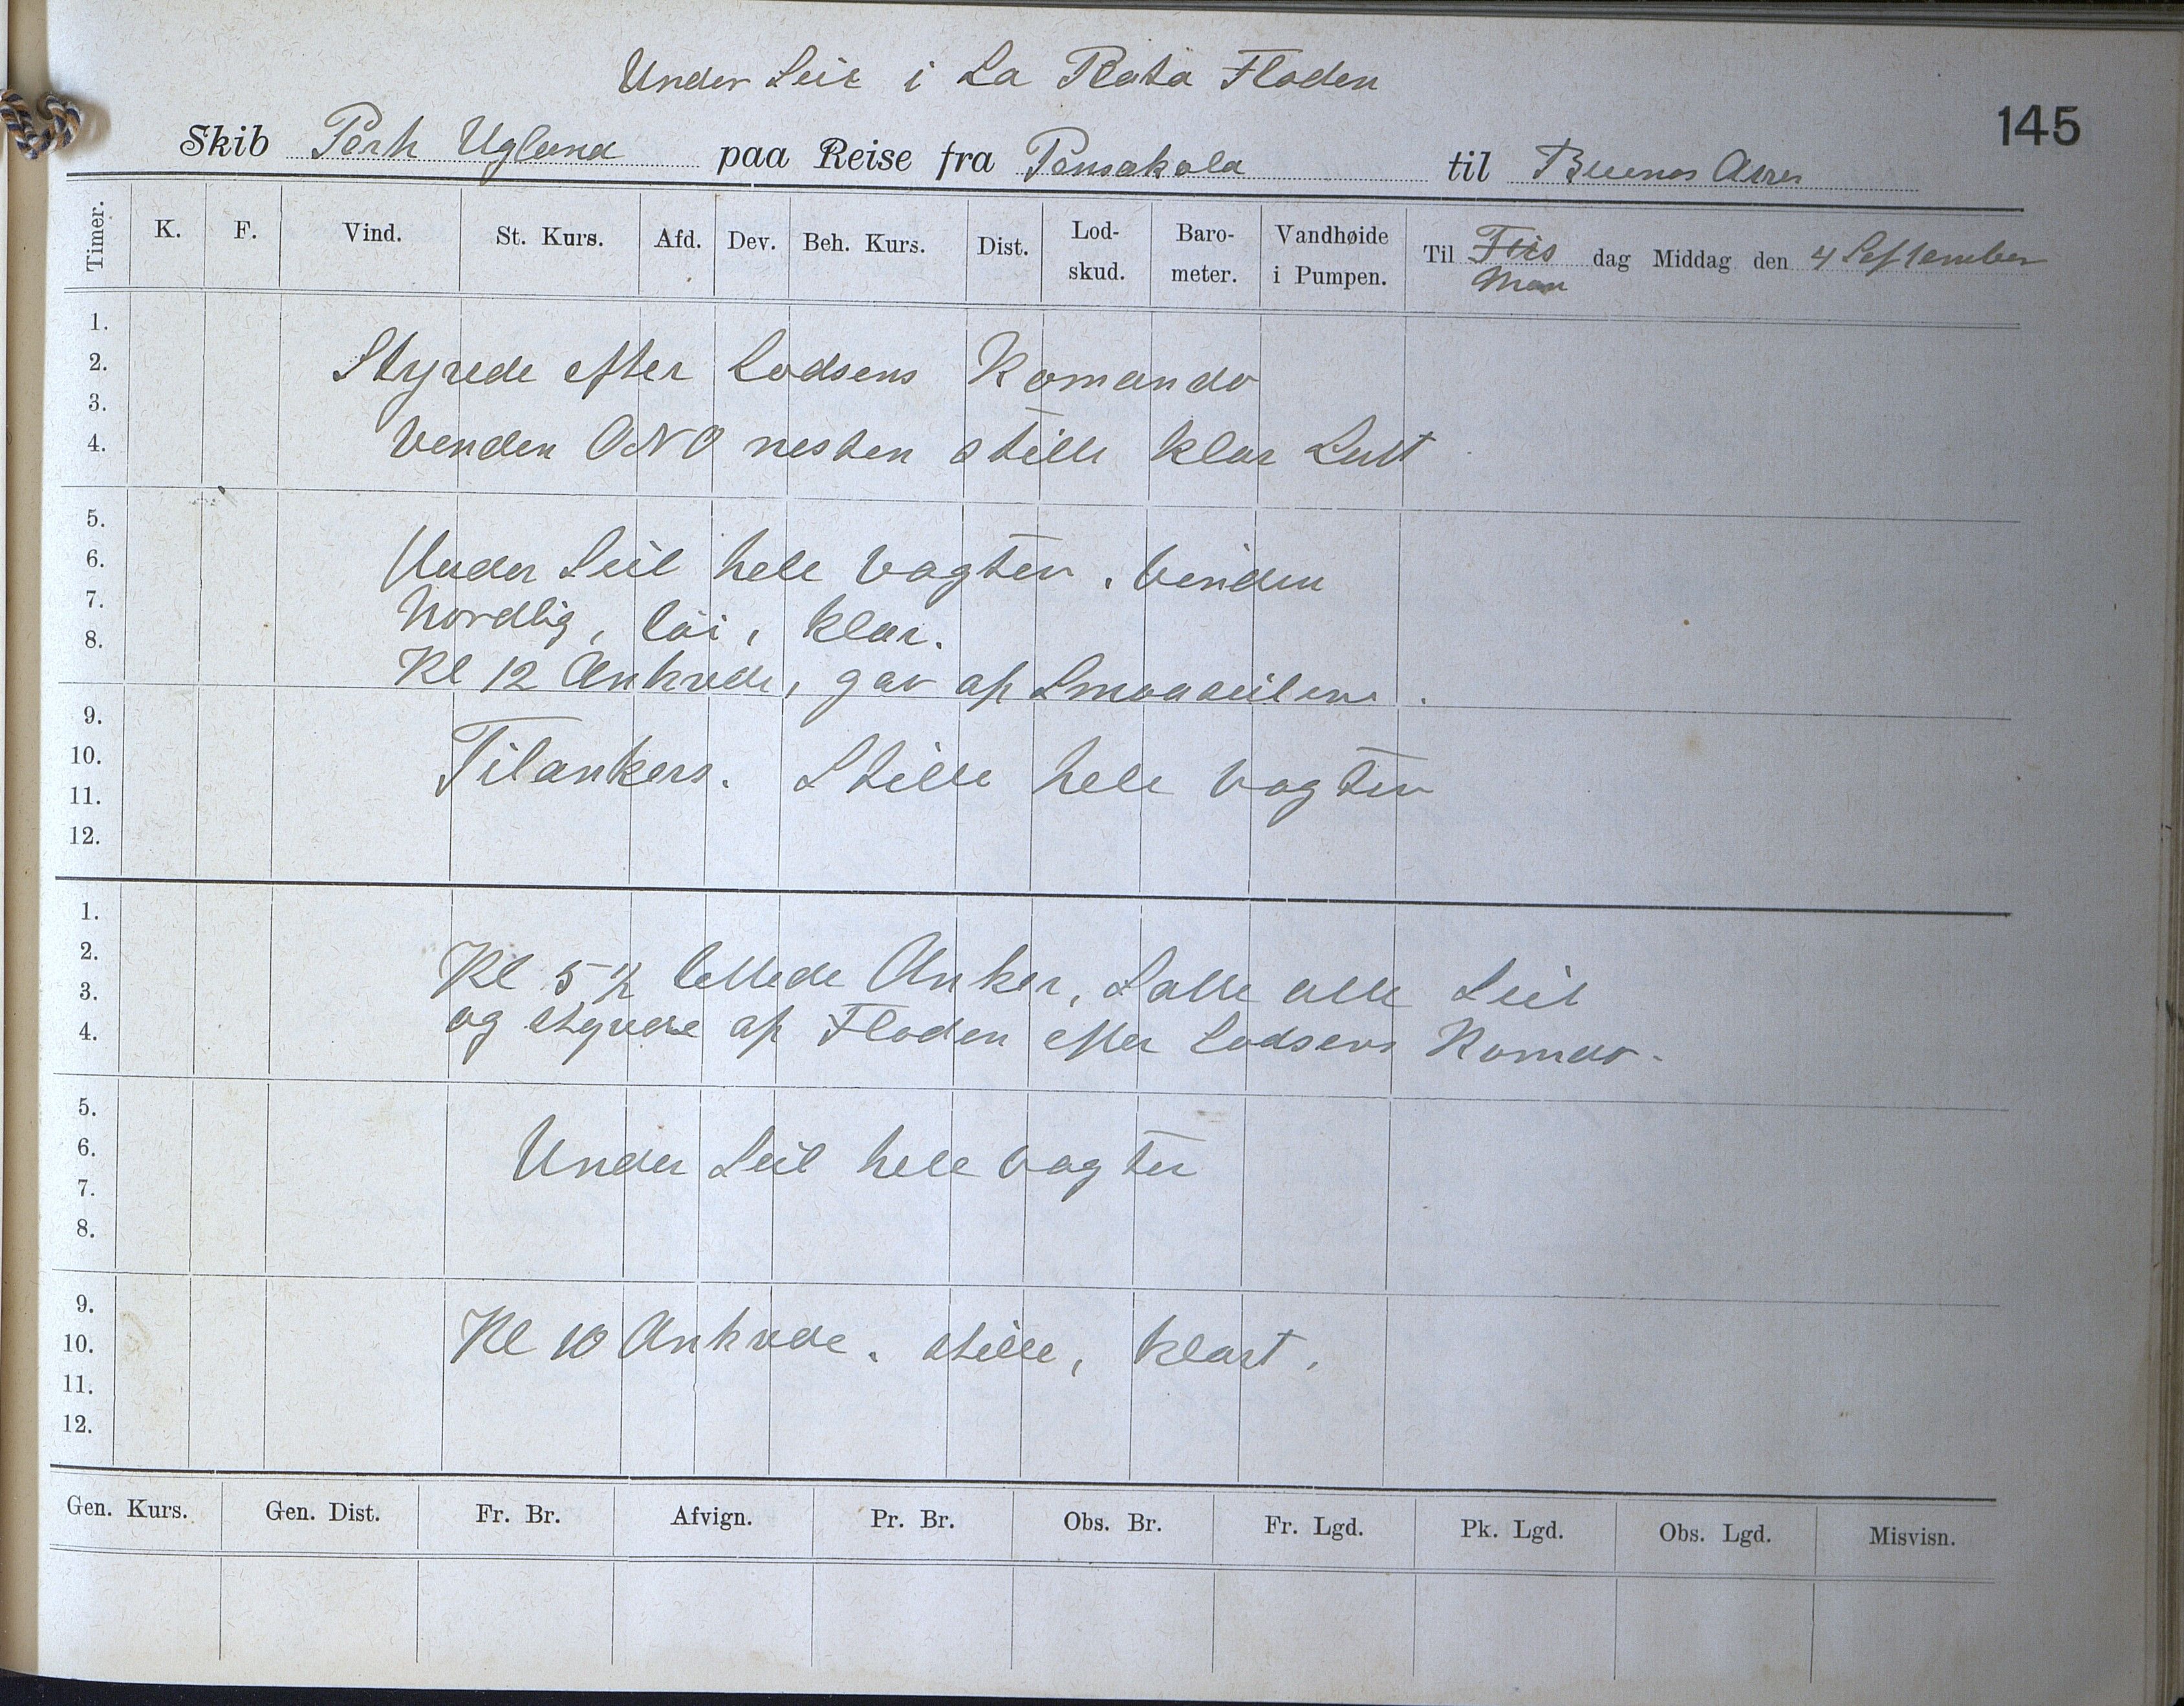 Under Seil i La Plata Floden
145
Skib Perh Ugland paa Reise fra Pensakola til Buenos Aires
Timer. K. F. Vind. St. Kurs. Afd. Dev. Beh. Kurs. Dist. Lod-skud. Baro-meter. Vandhøide i Pumpen. Til Tirs dag Middag den 4 September
Man
1.
2. Styrede efter Lodsens Komando
3.
4. Venden ONO nesten stille klar Luft
5.
6. Under Seil hele vagten. Vinden
7. Nordlig, løi, klar.
8. Kl 12 Ankrede, gav af Smaaseilene.
9.
10. Tilankers. Stille hele vagten
11.
12.
1.
2.
3. Kl 5 ½ lettede Anker, Satte alle Seil
4. og styrede af Floden efter Lodsens Komdo.
5.
6. Under Seil hele vagten
7.
8.
9.
10. Kl 10 Ankrede. stille, klart.
11.
12.
Gen. Kurs. Gen. Dist. Fr. Br. Afvign. Pr. Br. Obs. Br. Fr. Lgd. Pk. Lgd. Obs. Lgd. Misvisn.